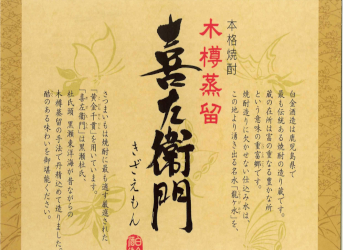 本格焼酎
木樽蒸留
喜左衛門
きざえもん
白金酒造は鹿児島県で
最も伝統ある焼酎の造り蔵です。
蔵の在所は富の重なる豊かな所
という意味の重富郷です。
焼酎造りに欠かせない仕込み水は、
この地より湧き出る名水「龍ヶ水」を、
さつまいもは焼酎に最も適す厳選された
「黄金千貫」を用いています。
「喜左衛門」は黒瀬杜氏、
杜氏頭 黒瀬東洋海が昔ながらの
木樽蒸留の手法で丹精込めて造りました。
酷のある味わいを御堪能ください。